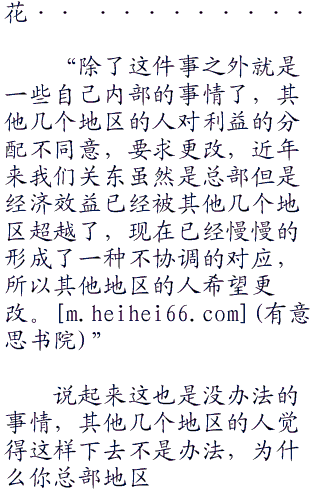 花· · · · · · · · · · ·
“除了这件事之外就是
一些自己内部的事情了，其
他几个地区的人对利益的分
配不同意，要求更改，近年
来我们关东虽然是总部但是
经济效益已经被其他几个地
区超越了，现在已经慢慢的
形成了一种不协调的对应，
所以其他地区的人希望更
改。[m.heihei66.com](有意
思书院)”
说起来这也是没办法的
事情，其他几个地区的人觉
得这样下去不是办法，为什
么你总部地区